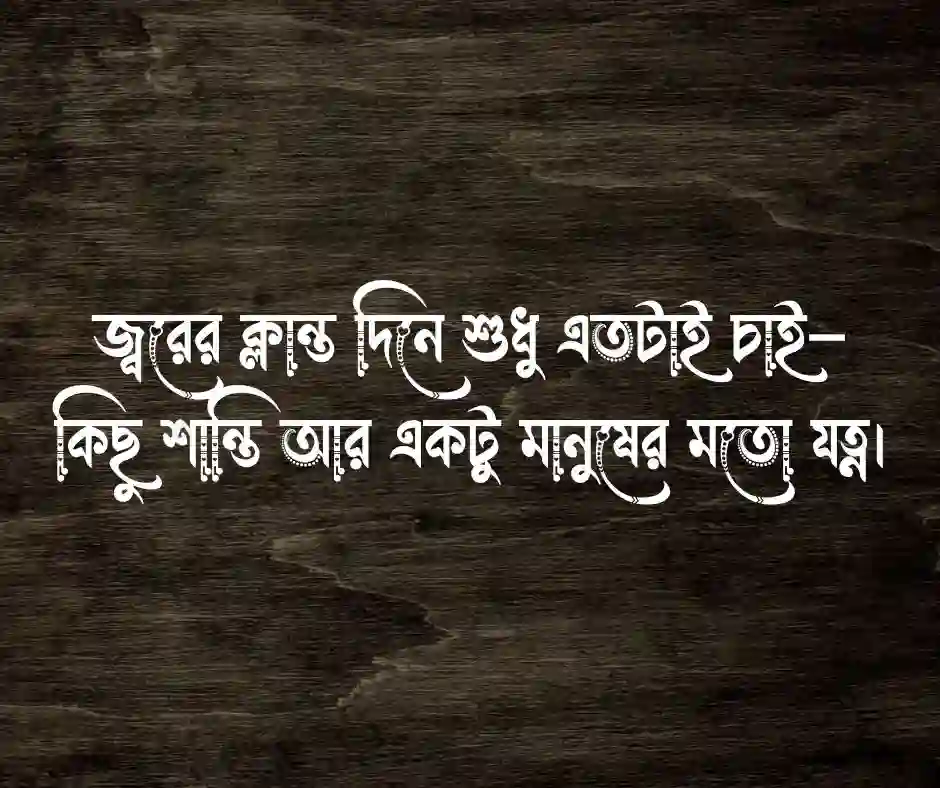 জ্বরের ক্লান্ত দিনে শুধু এতটাই চাই–
কিছু শান্তি আর একটু মানুষের মতো যত্ন।